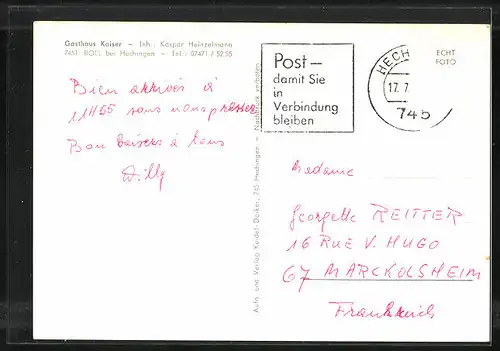 Gasthaus Kaiser – Inh.: Kaspar Heinzelmann
7451 BOLL bei Hechingen – Tel.: 07471 / 52 55
Bien arrivés à
11H55 sans nous presser
Bon baisers à tous
Willy
Post –
damit Sie
in
Verbindung
bleiben
HECH
17. 7
745
ECHT
FOTO
Aufn. und Verlag Keidel-Daiker, 745 Hechingen – Nachdruck verboten
Madame
Georgette REITTER
16 RUE V. HUGO
67 MARCKOLSHEIM
Frankreich